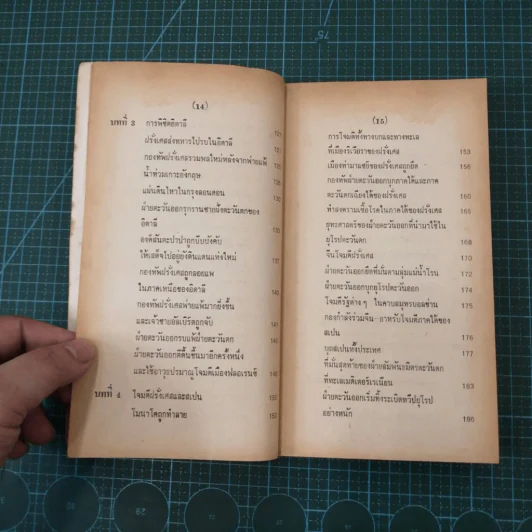 (14)
บทที่ 3 การพิชิตอิตาลี
ฝรั่งเศสส่งทหารไปรบในอิตาลี
กองทัพฝรั่งเศสรวมพลใหม่หลังจากพ่ายแพ้
น้ำท่วมเกาะอังกฤษ
แผ่นดินไหวในกรุงลอนดอน
ฝ่ายตะวันออกรุกรานชายฝั่งตะวันตกของ
อิตาลี
องค์สันตะปาปาถูกบีบบังคับ
ให้เสด็จไปอยู่ยังดินแดนแห่งใหม่
กองทัพฝรั่งเศสถูกลอยแพ
ในภาคเหนือของอิตาลี
กองทัพฝรั่งเศสพ่ายแพ้มากยิ่งขึ้น
และเจ้าชายอัลเบิร์ตถูกจับ
ฝ่ายตะวันออกรบแพ้ฝ่ายตะวันตก
ฝ่ายตะวันออกตีตื้นขึ้นมาอีกครั้งหนึ่ง
และใช้อาวุธปรมาณูโจมตีเมืองฟลอเรนซ์
บทที่ 4 โจมตีฝรั่งเศสและสเปน
โมนาโคถูกทำลาย 150
(15)
การโจมตีทั้งทางบกและทางทะเล
ที่เมืองริเวียราของฝรั่งเศส 153
เมืองท่ามาร์เซย์ของฝรั่งเศสถูกยึด 156
กองทัพฝ่ายตะวันออกบุกภาคใต้และภาค
ตะวันตกเฉียงใต้ของฝรั่งเศส 160
ทำสงครามเชื้อโรคในภาคใต้ของฝรั่งเศส 165
ยุทธศาสตร์ของฝ่ายตะวันออกที่นำมาใช้ใน
ยุโรปตะวันตก 168
จีนโจมตีฝรั่งเศส 170
ฝ่ายตะวันออกยึดที่มั่นตามลุ่มแม่น้ำโรน 172
ฝ่ายตะวันออกบุกยุโรปตะวันออก 174
โจมตีรัฐต่าง ๆ ในคาบสมุทรบอลข่าน 175
กองกำลังร่วมจีน-อาหรับโจมตีภาคใต้ของ
สเปน 176
บุกสเปนทั้งประเทศ 177
ที่มั่นสุดท้ายของฝ่ายสัมพันธมิตรตะวันตก
ที่ทะเลเมดิเตอร์เรเนียน 183
ฝ่ายตะวันออกเริ่มทิ้งระเบิดทวีปยุโรป
อย่างหนัก 186